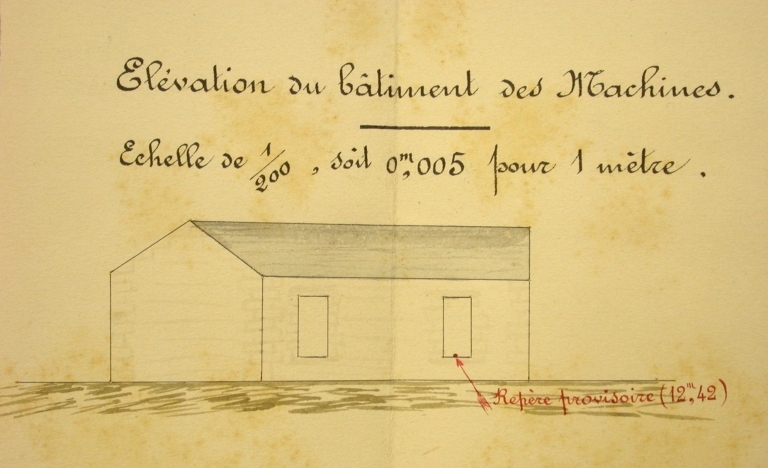 Elévation du bâtiment des Machines.
Echelle de 1/200, soit 0m,005 pour 1 mètre.
Repère provisoire (12m,42)